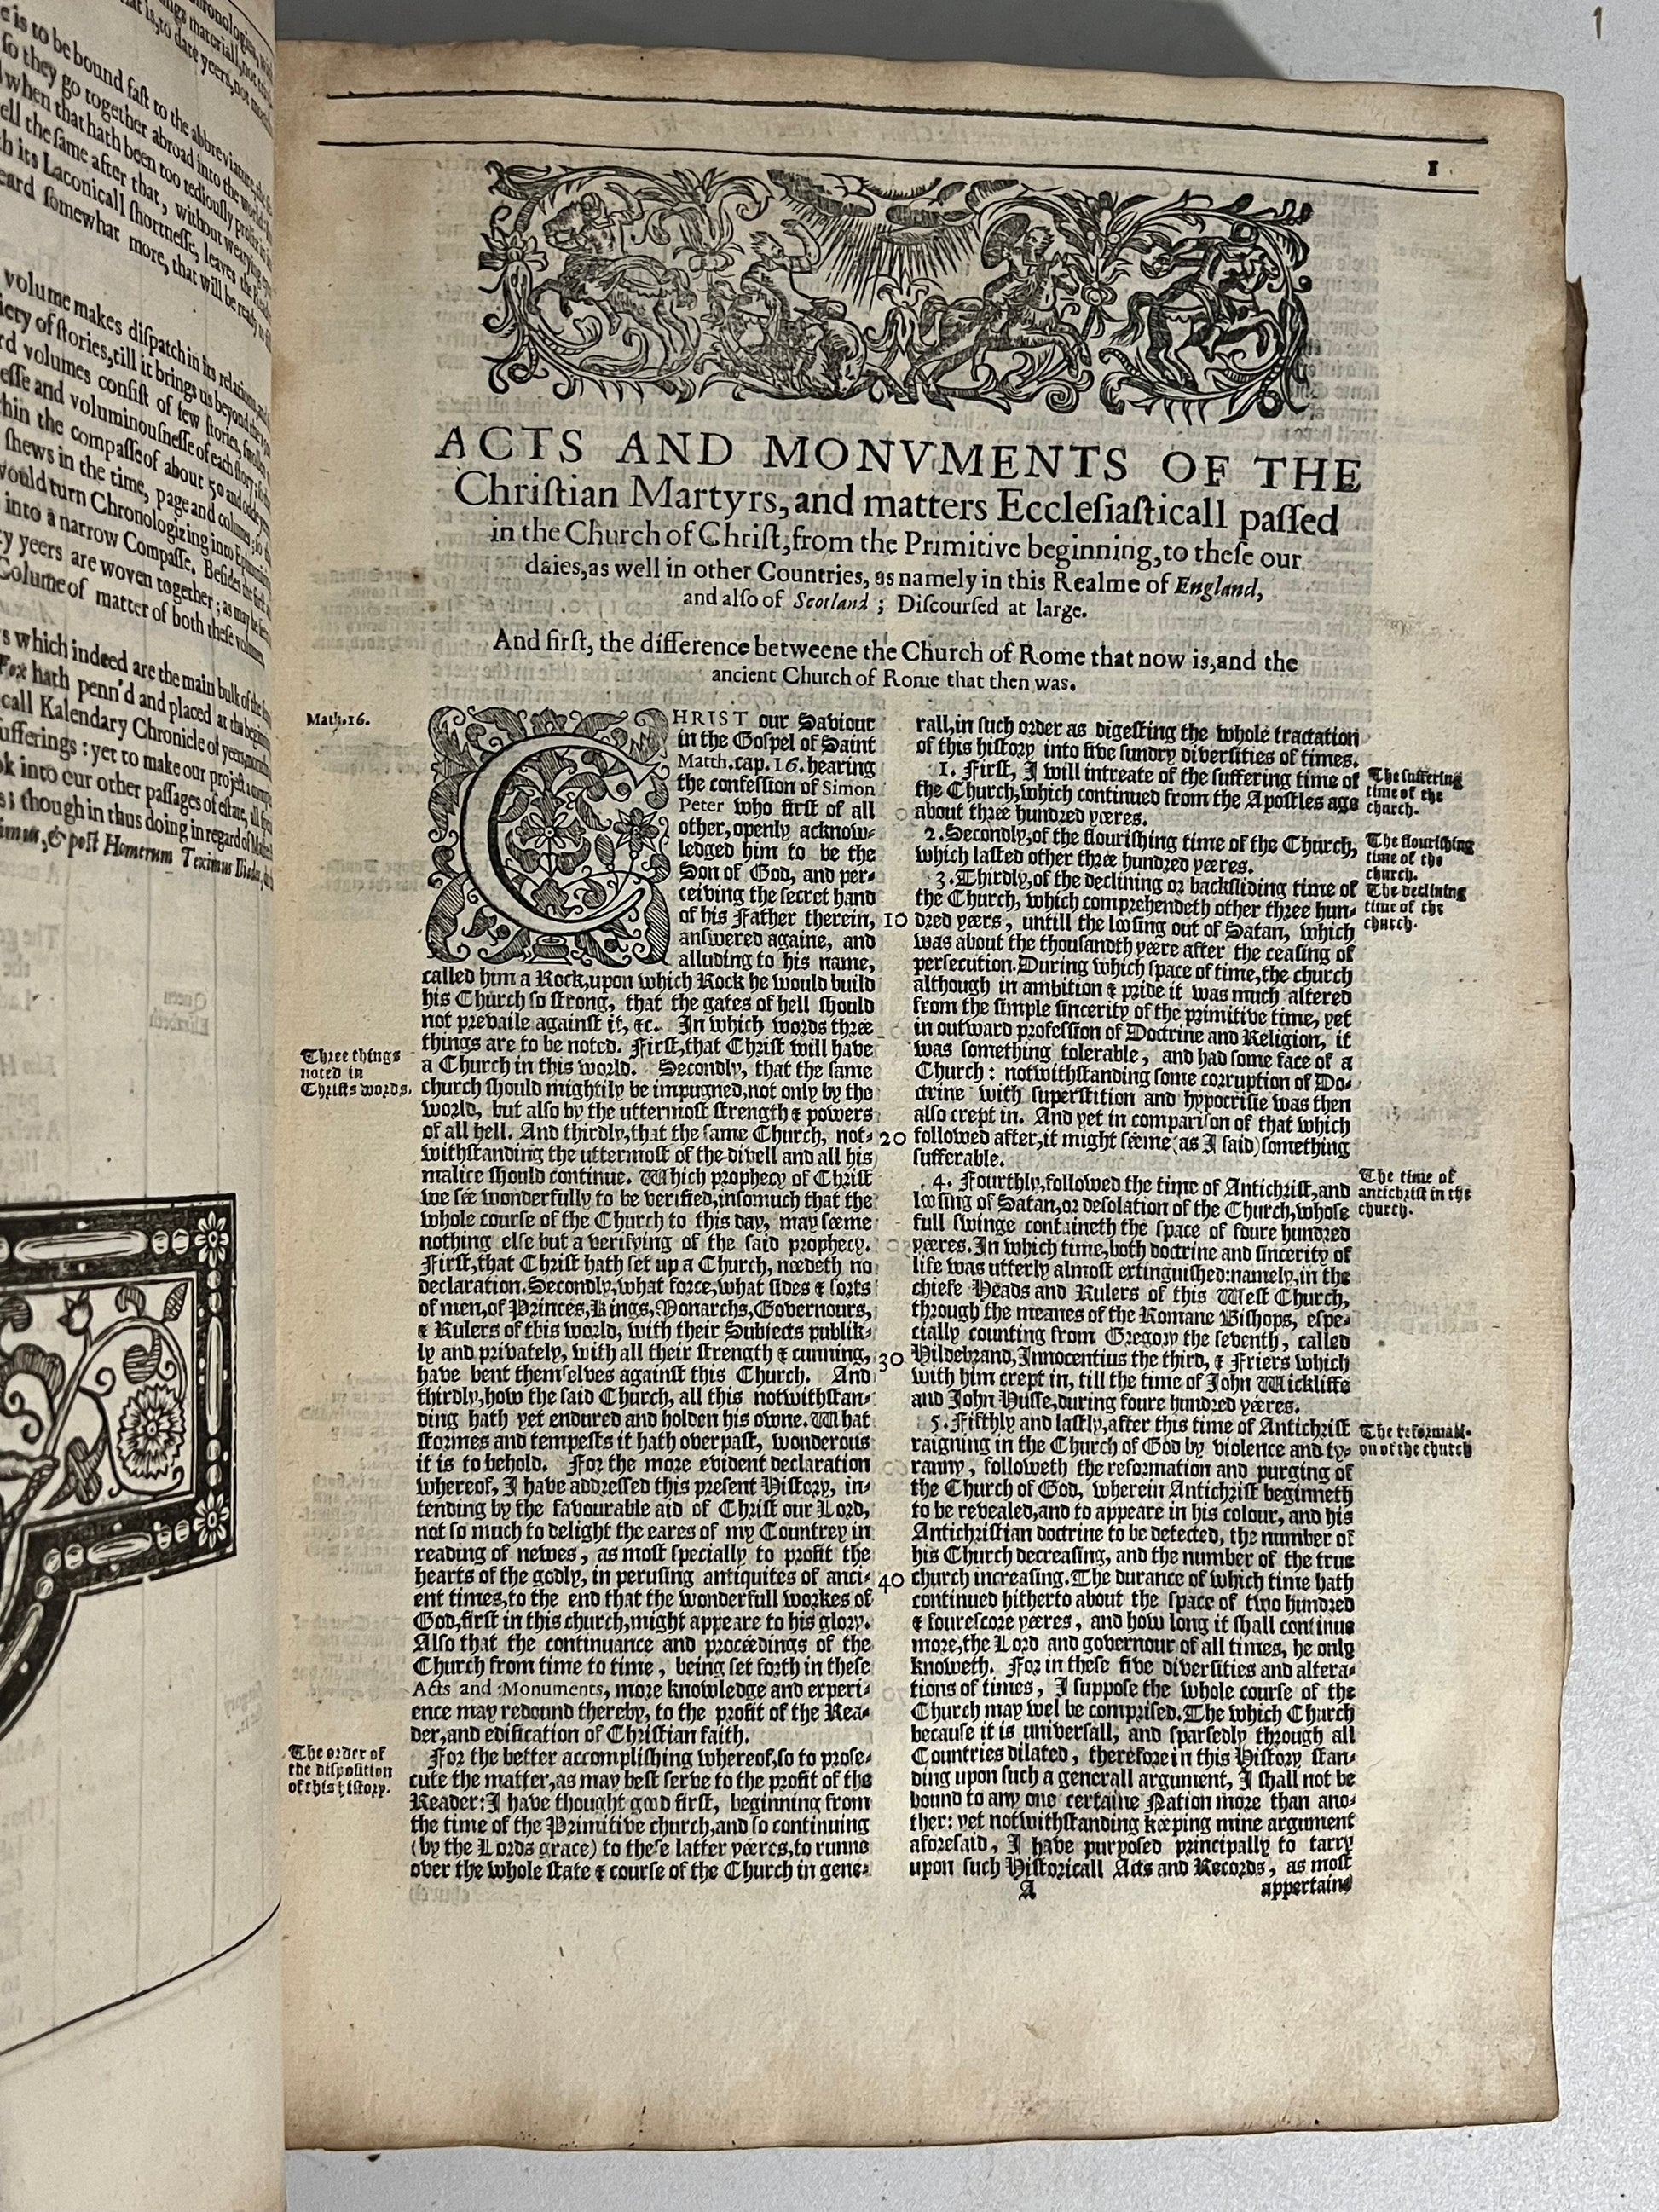 hronologies, with
ngs materiall, not tim
at is, to date yeers, not month
e is to be bound fast to the abbreviature, the
so they go together abroad into the world; the
when that hath been too tediously prolix in
ell the same after that, without wearying
h its Laconicall shortnesse, leaves the Reader
eard somewhat more, that will be ready to
volume makes dispatch in its relations, and
iety of stories, till it brings us beyond the yeer
rd volumes consist of few stories, swollen
esse and voluminousnesse of each story; so that
thin the compasse of about 50 and odde yeers
shews in the time, page and columes; so that
would turn Chronologizing into Epitomizing
into a narrow Compasse. Besides the first
ty yeers are woven together; as may be seen
Colume of matter of both these volumes
s which indeed are the main bulk of the
Fox hath penn'd and placed at the beginning
call Kalendary Chronicle of yeers, months
ufferings: yet to make our project a compleat
ok into our other passages of estate, ill
s; though in thus doing in regard of
imus, & post Homerum Teximus Iliada,
1
ACTS AND MONVMENTS OF THE
Chriſtian Martyrs, and matters Eccleſiaſticall paſſed
in the Church of Chriſt, from the Primitive beginning, to theſe our
daies, as well in other Countries, as namely in this Realme of England,
and alſo of Scotland; Diſcourſed at large.
And firſt, the difference betweene the Church of Rome that now is, and the
ancient Church of Rome that then was.
Math. 16.
CHRIST our Saviour
in the Goſpel of Saint
Matth. cap. 16. hearing
the confeſſion of Simon
Peter who firſt of all
other, openly acknow-
ledged him to be the
Son of God, and per-
ceiving the ſecret hand
of his Father therein,
anſwered againe, and
alluding to his name,
called him a Rock, upon which Rock he would build
his Church ſo ſtrong, that the gates of hell ſhould
not prevaile againſt it, &c. In which words three
things are to be noted. Firſt, that Chriſt will have
Three things
noted in
Chriſts words.
a Church in this world. Secondly, that the ſame
church ſhould mightily be impugned, not only by the
world, but alſo by the uttermoſt ſtrength & powers
of all hell. And thirdly, that the ſame Church, not-
withſtanding the uttermoſt of the divell and all his
malice ſhould continue. Which prophecy of Chriſt
we ſee wonderfully to be verified, inſomuch that the
whole courſe of the Church to this day, may ſeeme
nothing elſe but a verifying of the ſaid prophecy.
Firſt, that Chriſt hath ſet up a Church, needeth no
declaration. Secondly, what force, what ſides & ſorts
of men, of Princes, Kings, Monarchs, Governours,
& Rulers of this world, with their Subjects publik-
ly and privately, with all their ſtrength & cunning,
have bent themſelves againſt this Church. And
thirdly, how the ſaid Church, all this notwithſtan-
ding hath yet endured and holden his owne. What
ſtormes and tempeſts it hath overpaſt, wonderous
it is to behold. For the more evident declaration
whereof, I have addreſſed this preſent Hiſtory, in-
tending by the favourable aid of Chriſt our Lord,
not ſo much to delight the eares of my Countrey in
reading of newes, as moſt ſpecially to profit the
hearts of the godly, in peruſing antiquites of anci-
ent times, to the end that the wonderfull workes of
God, firſt in this church, might appeare to his glory.
Alſo that the continuance and proceedings of the
Church from time to time, being ſet forth in theſe
Acts and Monuments, more knowledge and experi-
ence may redound thereby, to the profit of the Rea-
der, and edification of Chriſtian faith.
The order of
the diſpoſition
of this hiſtory.
For the better accompliſhing whereof, ſo to proſe-
cute the matter, as may beſt ſerve to the profit of the
Reader: I have thought good firſt, beginning from
the time of the Primitive church, and ſo continuing
(by the Lords grace) to theſe latter yeeres, to runne
over the whole ſtate & courſe of the Church in gene-
10
20
30
40
rall, in ſuch order as digeſting the whole tractation
of this hiſtory into five ſundry diverſities of times.
1. Firſt, I will intreate of the ſuffering time of
the Church, which continued from the Apoſtles age
about three hundred yeeres.
The ſuffering
time of the
church.
2. Secondly, of the flouriſhing time of the Church,
which laſted other three hundred yeeres.
The flouriſhing
time of the
church.
3. Thirdly, of the declining or backſliding time of
the Church, which comprehendeth other three hun-
dred yeers, untill the looſing out of Satan, which
The declining
time of the
church.
was about the thouſandth yeere after the ceaſing of
perſecution. During which ſpace of time, the church
although in ambition & pride it was much altered
from the ſimple ſincerity of the primitive time, yet
in outward profeſſion of Doctrine and Religion, it
was ſomething tolerable, and had ſome face of a
Church: notwithſtanding ſome corruption of Do-
ctrine with ſuperſtition and hypocriſie was then
alſo crept in. And yet in compariſon of that which
followed after, it might ſeeme (as I ſaid) ſomething
ſufferable.
4. Fourthly, followed the time of Antichriſt, and
looſing of Satan, or deſolation of the Church, whoſe
The time of
antichriſt in the
church.
full ſwinge containeth the ſpace of foure hundred
yeeres. In which time, both doctrine and ſincerity of
life was utterly almoſt extinguiſhed: namely, in the
chiefe Heads and Rulers of this Weſt Church,
through the meanes of the Romane Biſhops, eſpe-
cially counting from Gregory the ſeventh, called
Hildebrand, Innocentius the third, & Friers which
with him crept in, till the time of John Wickliffe
and John Huſſe, during foure hundred yeeres.
5. Fifthly and laſtly, after this time of Antichriſt
raigning in the Church of God by violence and ty-
The reformati-
on of the church
ranny, followeth the reformation and purging of
the Church of God, wherein Antichriſt beginneth
to be revealed, and to appeare in his colour, and his
Antichriſtian doctrine to be detected, the number of
his Church decreaſing, and the number of the true
church increaſing. The durance of which time hath
continued hitherto about the ſpace of two hundred
& foureſcore yeeres, and how long it ſhall continue
more, the Lord and governour of all times, he only
knoweth. For in theſe five diverſities and altera-
tions of times, I ſuppoſe the whole courſe of the
Church may wel be compriſed. The which Church
becauſe it is univerſall, and ſparſedly through all
Countries dilated, therefore in this Hiſtory ſtan-
ding upon ſuch a generall argument, I ſhall not be
bound to any one certaine Nation more than ano-
ther: yet notwithſtanding keeping mine argument
aforeſaid, I have purpoſed principally to tarry
upon ſuch Hiſtoricall Acts and Records, as moſt
A
appertaine